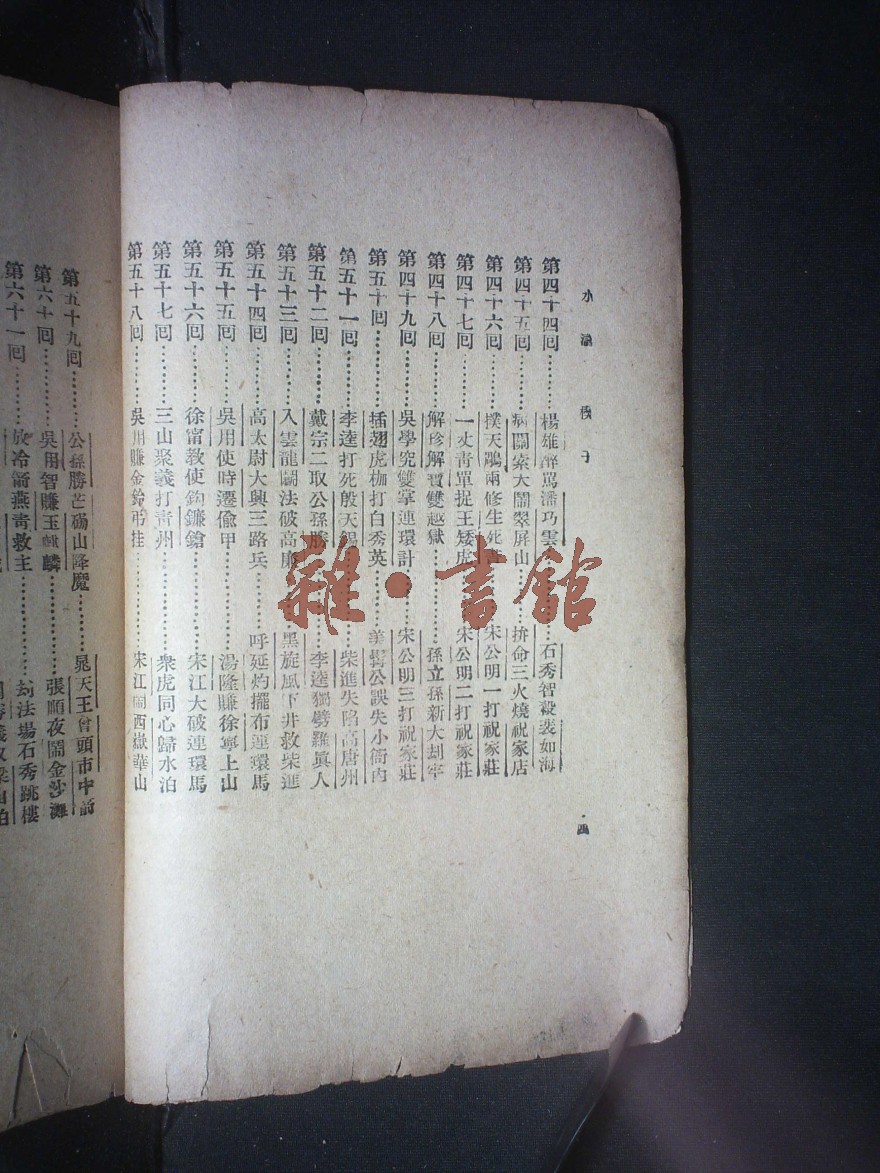 水滸 四
第四十四回………楊雄醉罵潘巧雲………石秀智殺裴如海
第四十五回………病關索大鬧翠屏山………拚命三火燒祝家店
第四十六回………撲天鵰兩修生死書………宋公明一打祝家莊
第四十七回………一丈青單捉王矮虎………宋公明二打祝家莊
第四十八回………解珍解寶雙越獄………孫立孫新大刧牢
第四十九回………吳學究雙掌連環計………宋公明三打祝家莊
第五十回………插翅虎枷打白秀英………美髯公誤失小衙內
第五十一回………李逵打死殷天錫………柴進失陷高唐州
第五十二回………戴宗二取公孫勝………李逵獨劈羅眞人
第五十三回………入雲龍鬭法破高廉………黑旋風下井救柴進
第五十四回………高太尉大興三路兵………呼延灼擺布連環馬
第五十五回………吳用使時遷偸甲………湯隆賺徐寧上山
第五十六回………徐甯教使鈎鐮鎗………宋江大破連環馬
第五十七回………三山聚義打青州………衆虎同心歸水泊
第五十八回………吳用賺金鈴吊挂………宋江鬧西嶽華山
第五十九回………公孫勝芒碭山降魔………晁天王曾頭市中箭
第六十回………吳用智賺玉麒麟………張順夜鬧金沙灘
第六十一回………放冷箭燕青救主………刼法場石秀跳樓
雜·書館